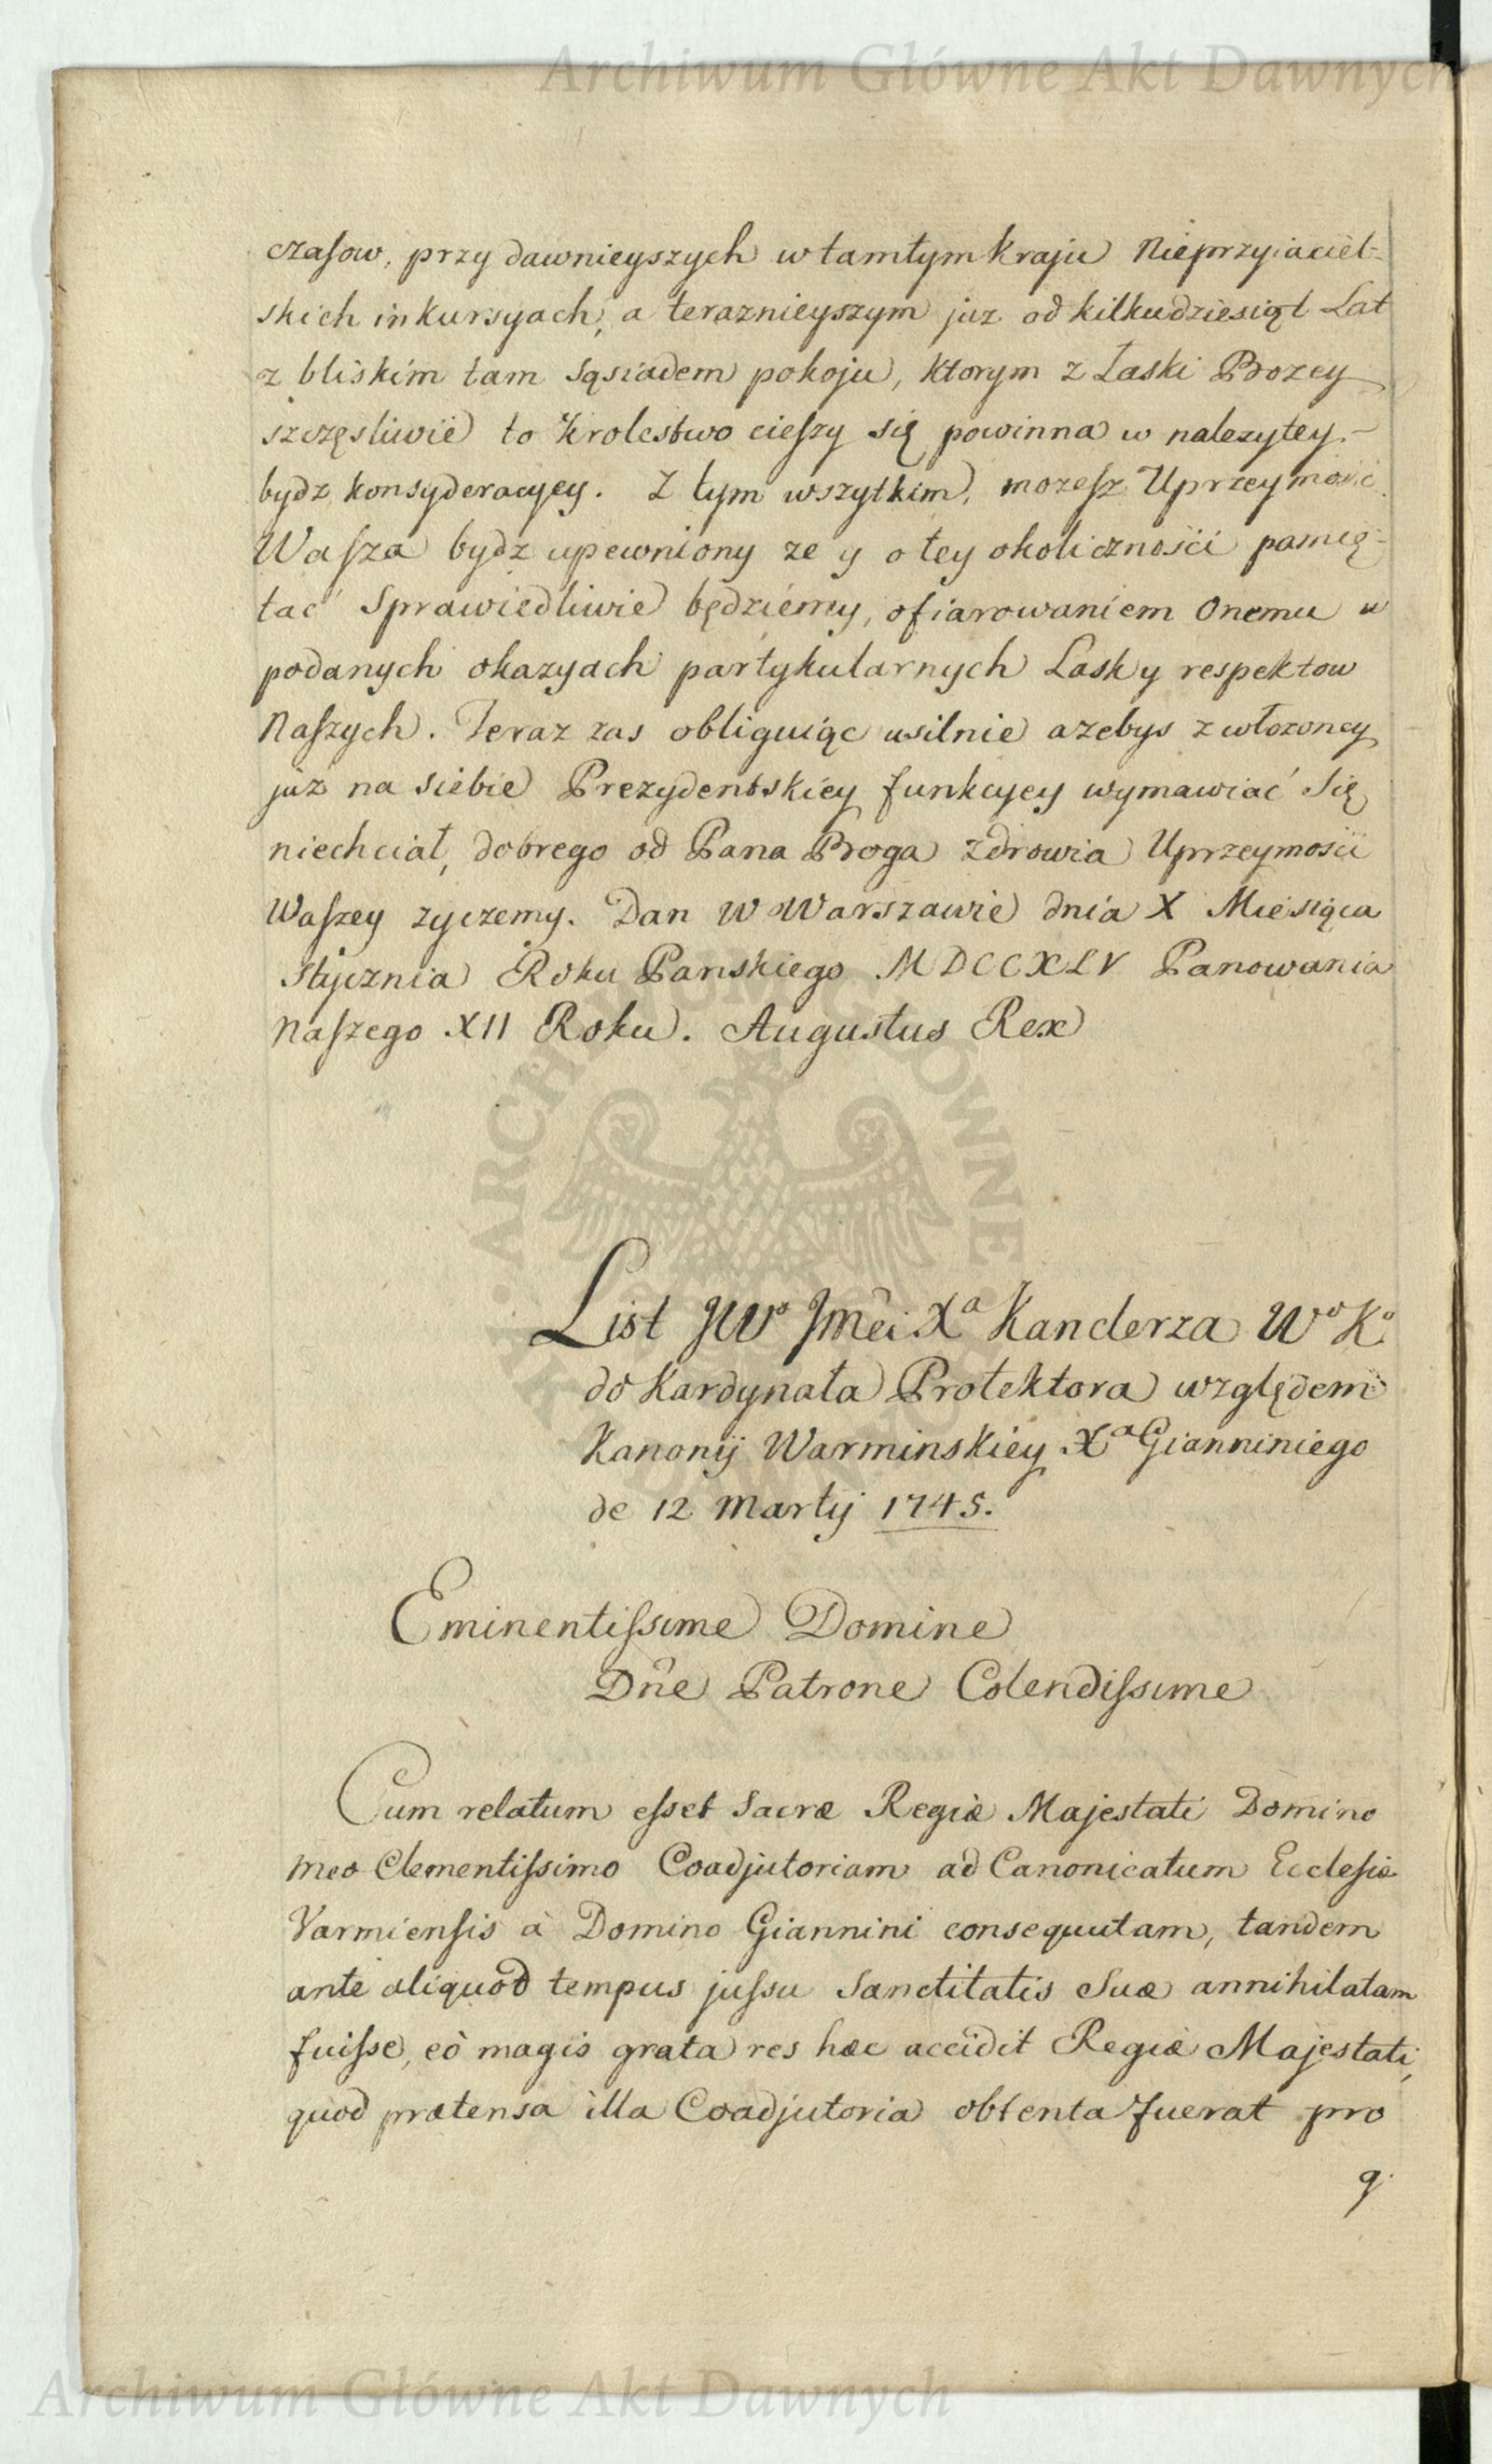 Archiwum Główne Akt Dawnych
czasow, przy dawnieyszych w tamtym kraju Nieprzyiaciel-
skich inkursyach, a teraznieyszym juz od kilkudziesiąt Lat
z bliskim tam sąsiadem pokoju, ktorym z Łaski Bozey
szczęsliwie to Krolestwo cieszy się powinna w nalezytey
bydz konsyderacyey. Z tym wszytkim, mozesz Uprzeymość
Wasza bydz upewniony ze y o tey okolicznośći pamię-
tac Sprawiedliwie będziemy, ofiarowaniem Onemu w
podanych okazyach partykularnych Lask y respektow
Naszych. Teraz zas obliguiąc usilnie azebys z włozoney
juz na siebie Prezydentskiey funkcyey wymawiać się
niechciał, dobrego od Pana Boga zdrowia Uprzeymosci
Waszey zyczemy. Dan W Warszawie dnia X Miesiąca
Stycznia Roku Panskiego MDCCXLV Panowania
Naszego XII Roku. Augustus Rex
List JWo Jmći Xa Kanclerza Wo Ko
do Kardynała Protektora względem
Kanonij Warminskiey Xa Gianniniego
de 12 Martij 1745.
Eminentissime Domine
Dñe Patrone Colendissime
Cum relatum esset Sacræ Regiæ Majestati Domino
meo Clementissimo Coadjutoriam ad Canonicatum Ecclesiæ
Varmiensis à Domino Giannini consequutam, tandem
ante aliquod tempus jussu Sanctitatis Suæ annihilatam
fuisse, eò magis grata res hæc accidit Regiæ Majestati,
quod prætensa illa Coadjutoria obtenta fuerat pro
q.
Archiwum Główne Akt Dawnych